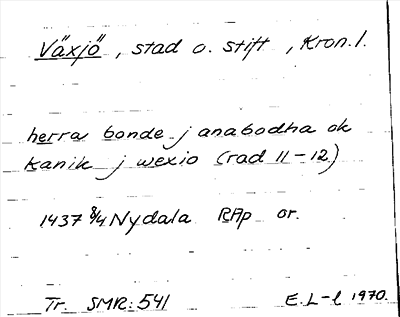 Växjö, stad o. stift, Kron.l.
herra bonde j anabodha ok
kanik j wexio (rad 11-12)
1437 8/4 Nydala RAp or.
Tr. SMR: 541 E.L-l 1970.